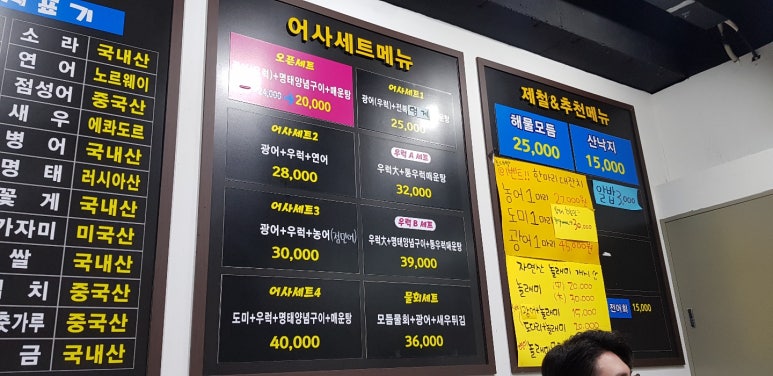 표기
소라 국내산
연어 노르웨이
점성어 중국산
새우 에콰도르
병어 국내산
명태 러시아산
꽃게 국내산
가자미 미국산
쌀 국내산
치 중국산
춧가루 중국산
금 국내산
어사세트메뉴
오픈세트
(우럭)+명태양념구이+매운탕
20,000
어사세트1
광어(우럭)+전복
25,000
어사세트2
광어+우럭+연어
28,000
우럭 A 세트
우럭大+통우럭매운탕
32,000
어사세트3
광어+우럭+농어(점민어)
30,000
우럭 B 세트
우럭大+명태양념구이+통우럭매운탕
39,000
어사세트4
도미+우럭+명태양념구이+매운탕
40,000
물회세트
모듬물회+광어+새우튀김
36,000
제철&추천메뉴
해물모듬
25,000
산낙지
15,000
한마리 대잔치
농어 1마리
도미 1마리 30,000
광어 1마리 45,000원
알밥 3,000
자연산 놀래미 개시
놀래미 20,000
30,000
광어+놀래미 15,000
도다리+놀래미 20,000
전어회 15,000